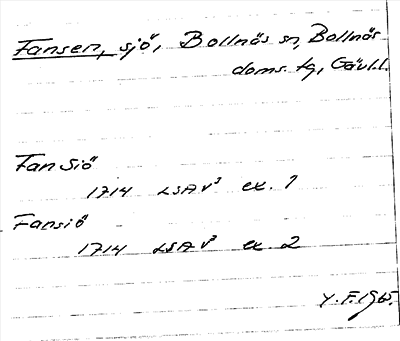 Fansen, sjö, Bollnäs sn, Bollnäs
doms. tg, Gävl.l.
Fan Siö
1714 LSA V³ ex. 1
Fansiö
1714 LSA V³ ex. 2
Y.F. 1965.